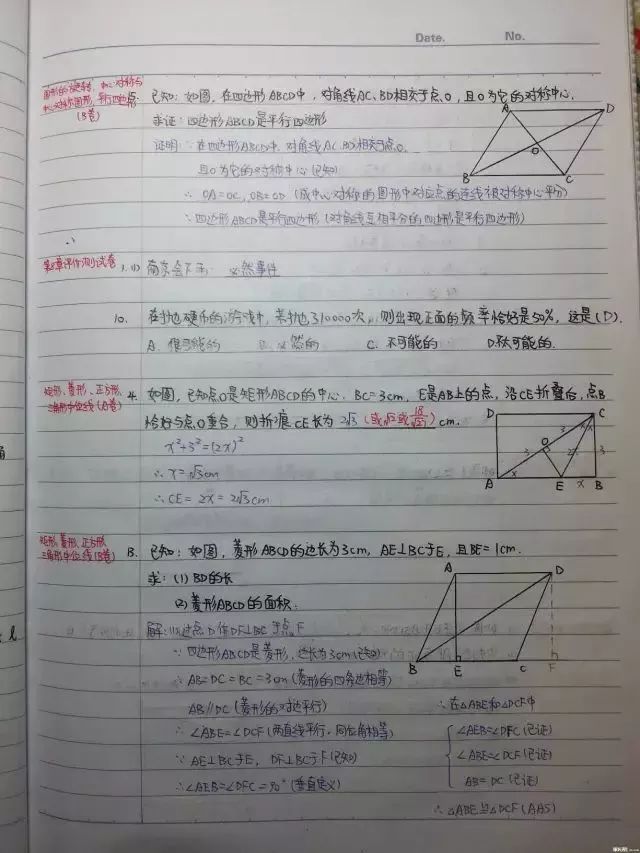 Date. No.
图形的旋转、中心对称与
中心对称图形、平行四边形
(B卷)
已知：如图，在四边形ABCD中，对角线AC、BD相交于点O，且O为它的对称中心.
求证：四边形ABCD是平行四边形
证明：∵在四边形ABCD中，对角线AC、BD相交于点O.
且O为它的对称中心(已知)
∴OA=OC，OB=OD（成中心对称的图形中对应点的连线被对称中心平分）
∴四边形ABCD是平行四边形（对角线互相平分的四边形是平行四边形）
A D O B C
测试卷
南京会下雨：必然事件
10. 在抛硬币的游戏中，若抛了10000次，则出现正面的频率恰好是50%，这是(D).
A. 很可能的 B. 必然的 C. 不可能的 D.不太可能的.
矩形、菱形、正方形、
三角形中位线(A卷)
4. 如图，已知点O是矩形ABCD的中心，BC=3cm，E是AB上的点，沿CE折叠后，点B
恰好与点O重合，则折痕CE长为2√3(或√12或18/√27)cm.
x²+3²=(2x)²
∴x=√3cm
∴CE=2x=2√3cm
D C O 3 3 2x 3 x A E x B
矩形、菱形、正方形、
三角形中位线(B卷)
13. 已知：如图，菱形ABCD的边长为3cm，AE⊥BC于E，且BE=1cm.
求：(1)BD的长
(2)菱形ABCD的面积.
解：(1)过点D作DF⊥BC于点F
∵四边形ABCD是菱形，边长为3cm(已知)
∴AB=DC=BC=3cm(菱形的四条边相等)
AB∥DC(菱形的对边平行)
∴∠ABE=∠DCF(两直线平行，同位角相等)
∵AE⊥BC于E，DF⊥BC于F(已知)
∴∠AEB=∠DFC=90°(垂直定义)
A D B E C F
∴在△ABE和△DCF中
∠AEB=∠DFC(已证)
∠ABE=∠DCF(已证)
AB=DC(已证)
∴△ABE≌△DCF(AAS)